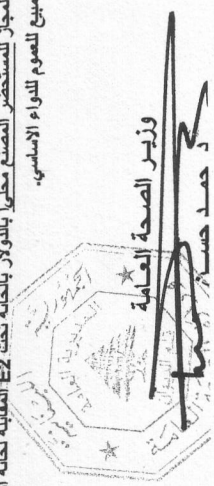 المجاز للمستحضر المصنع محلياً بالدولار بالخانة تحت E2 المقابلة لخانة
مبيع للعموم للدواء الاساسي.
وزير الصحة العامة
د حمد حسن